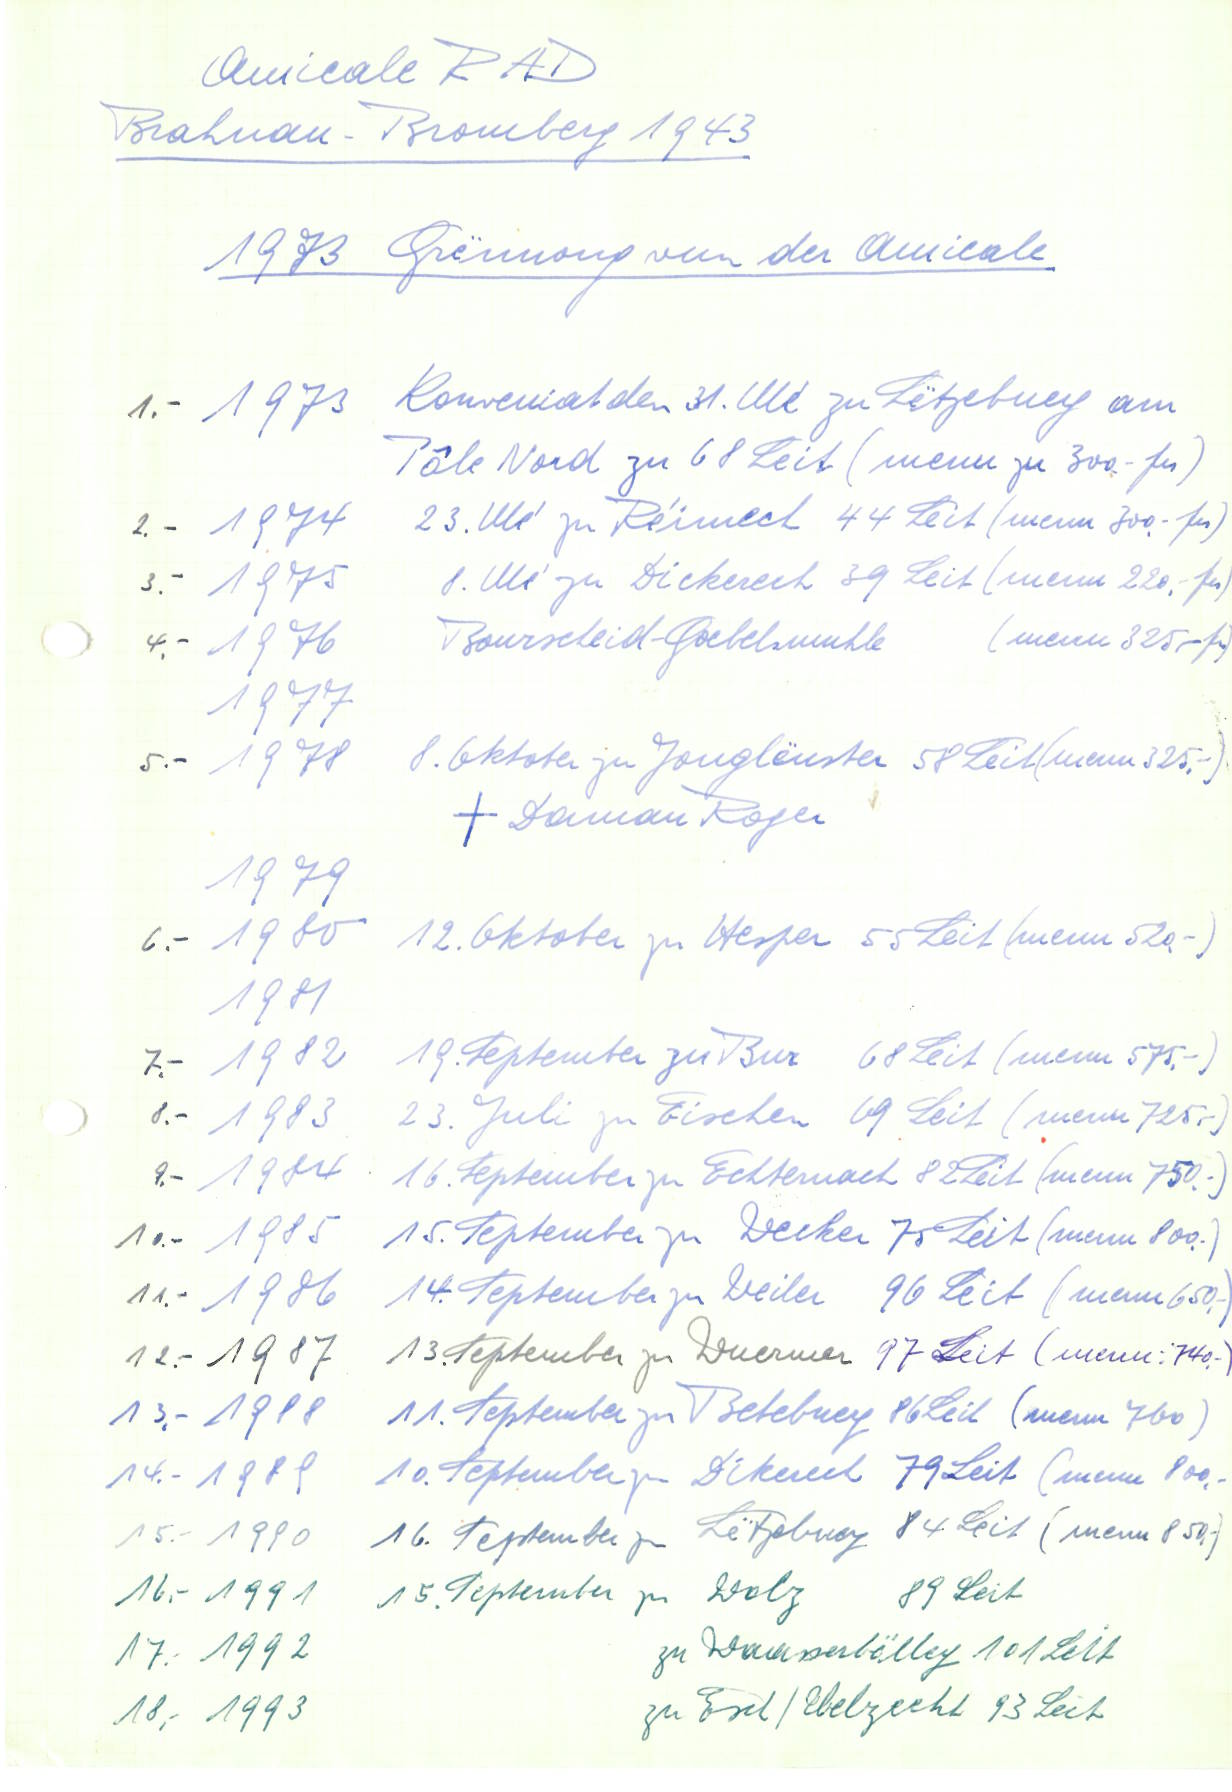 Amicale RAD
Brahnau-Bromberg 1943
1973 Grënnong vun der Amicale
1.- 1973 Konveniat den 31. Mé zu Lëtzebuerg am
Pôle Nord zu 68 Leit (menu zu 300.- frs)
2.- 1974 23. Mé zu Réimech 44 Leit (menu 300.- frs)
3.- 1975 8. Mé zu Dickerech 39 Leit (menu 220,- frs)
4.- 1976 Bourscheid-Goebelsmuhle (menu 325,- frs)
1977
5.- 1978 8. Oktober zu Jonglënster 58 Leit (menu 325,-)
+ Daman Roger
1979
6.- 1980 12. Oktober zu Hesper 55 Leit (menu 520,-)
1981
7.- 1982 19. September zu Bur 68 Leit (menu 575,-)
8.- 1983 23. Juli zu Eischen 69 Leit (menu 725,-)
9.- 1984 16. September zu Echternach 82 Leit (menu 750.-)
10.- 1985 15. September zu Wecker 75 Leit (menu 800.-)
11.- 1986 14. September zu Weiler 96 Leit (menu 650,-)
12.- 1987 13. September zu Wuermer 97 Leit (menu: 740.-)
13.- 1988 11. September zu Betebuerg 86 Leit (menu 760)
14.- 1989 10. September zu Dikerech 79 Leit (menu 800,-
15.- 1990 16. September zu Lëtzebuerg 84 Leit (menu 850,-)
16.- 1991 15. September zu Wolz 89 Leit
17.- 1992 zu Waasserbëlleg 101 Leit
18,- 1993 zu Esch/Uelzecht 93 Leit